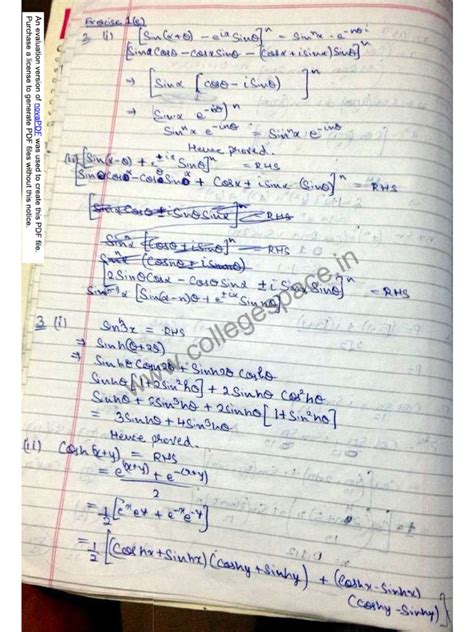 An evaluation version of novaPDF was used to create this PDF file.
Purchase a license to generate PDF files without this notice.
Exercise 1(e)
2 (i) [Sin(α+θ) - e^{iα} Sinθ]^n = Sin^n α · e^{-nθi}
[Sinα cosθ - cosα Sinθ - (cosα + i sinα) Sinθ]^n
⇒ [Sinα [cosθ - i Sinθ] ]^n
⇒ (Sinα e^{-iθ})^n
Sin^n α e^{-inθ} = Sin^n α · e^{-inθ}
Hence proved.
(ii) [Sin(α-θ) + e^{±iα} Sinθ]^n = RHS
= RHS
= RHS
Sinα [Cosθ ± i Sinθ]^n = RHS
(Cosnθ ± i Sinnθ)
= RHS
Sin^{n-1}α [Sin(α-nθ) + e^{±iα} Sin nθ]
3 (i) Sinh3x = RHS
⇒ Sinh(θ+2θ)
⇒ Sinhθ Cosh2θ + Sinh2θ Coshθ
Sinhθ [1+2Sin²hθ] + 2Sinhθ Cos²hθ
Sinhθ + 2Sin³hθ + 2Sinhθ [1+Sin²hθ]
= 3Sinhθ + 4Sin³hθ
Hence proved.
(ii) Cosh(x+y) = RHS
= e^{(x+y)} + e^{-(x+y)}
2
= 1/2 [e^x e^y + e^{-x} e^{-y}]
= 1/2 [(Coshx + Sinhx)(Coshy + Sinhy) + (Coshx - Sinhx)
(Coshy - Sinhy)]
www.collegespace.in